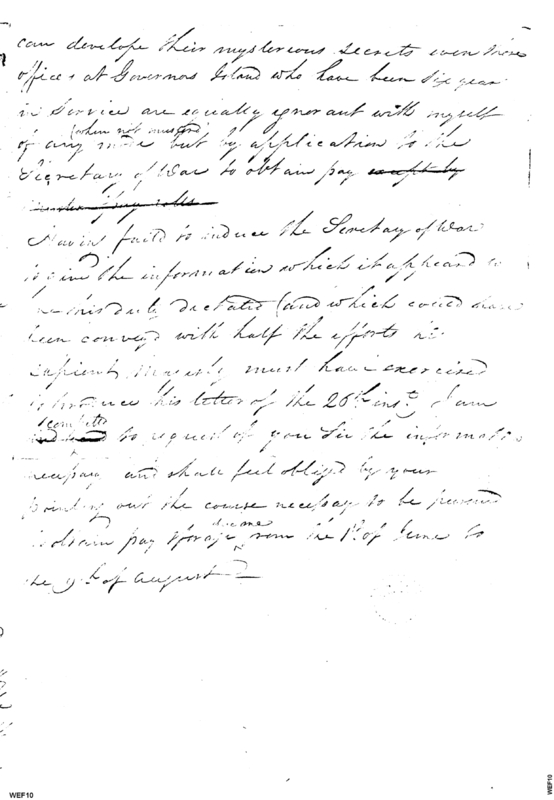 can develope their mysterious secrets even those
officers at Governors Island who have been six years
in service are equally ignorant with myself
(when not mustered)
of any mode but by application to the
Secretary of War to obtain pay except by
muster & pay rolls
Having faild to induce the Secretary of War
to give the information which it appeard to
me his duty dictated (and which could have
been conveyd with half the efforts his
sapient Majesty must have exercised
to produce his letter of the 26th inst, I am
to request of you Sir the informatio
necessary and shall feel obliged by your
pointing out the course necessary to be pursued
to obtain pay forage from the 1st of June to
the 9th of August
WEF10
WEF10